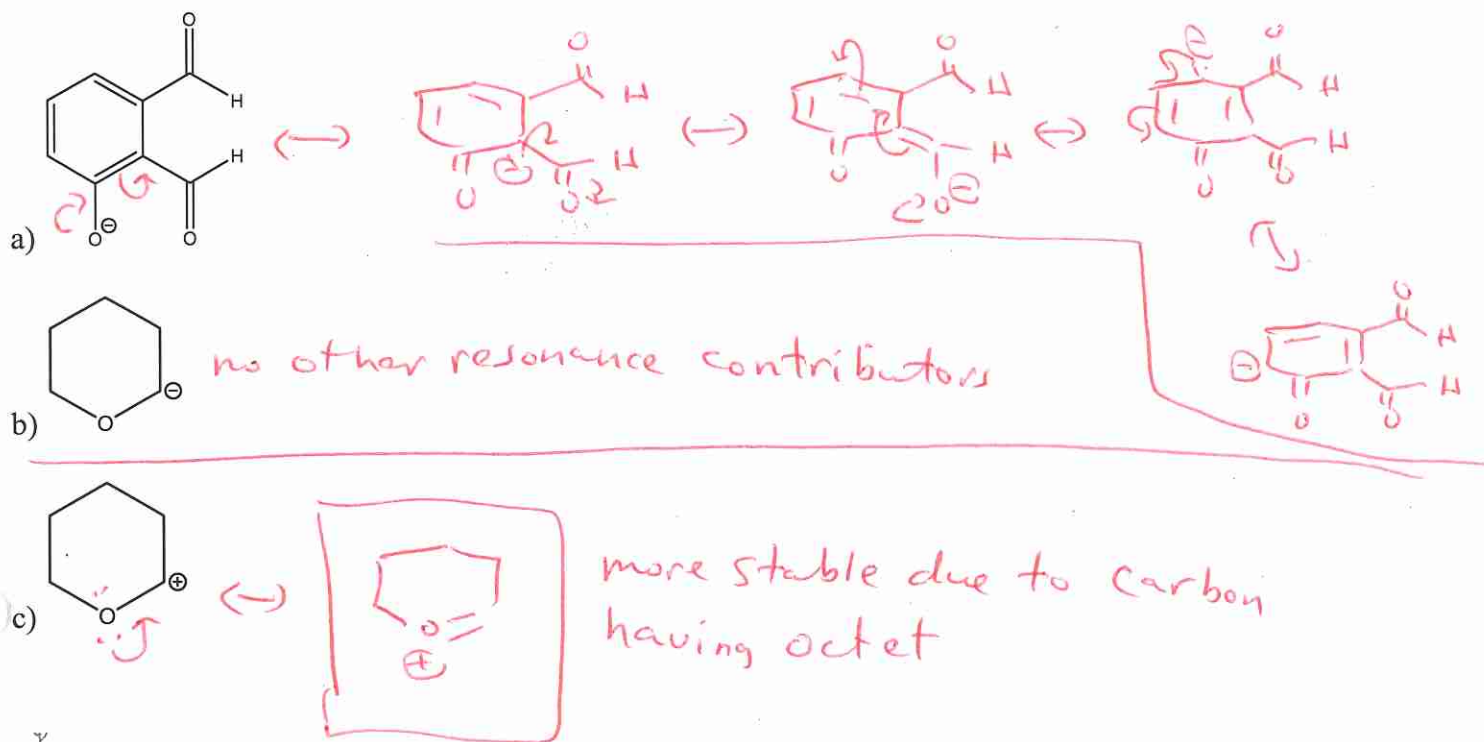 a)
b) no other resonance contributors
c) more stable due to carbon
having octet